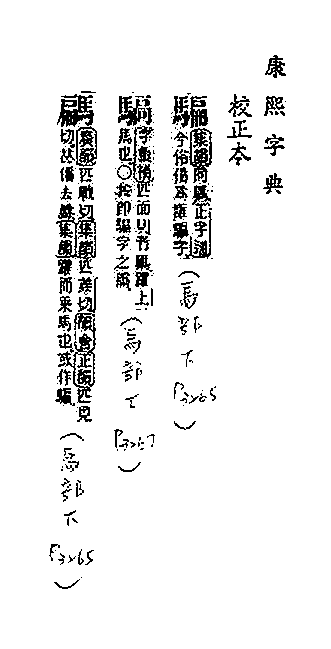 康熙字典
校正本
騙
集韻同騗正字通
今俗借爲誆騙字
(馬部下 P3265)
字彙補匹面切音騗躍上
馬也○按卽騙字之譌
(馬部下 P3267)
騗
廣韻匹戰切集韻匹羨切韻會正韻匹見
切𠀤偏去聲集韻躍而乘馬也或作騙
(馬部下 P3265)